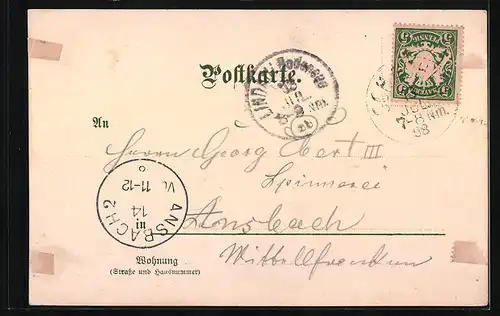 Postkarte.
LINDAU i. Bodensee
JUL
2 Nm.
98
7-8 Nm.
98
5 PFENNIG 5
BAYERN
An
Herrn Georg Ebert III
Spinnerei
in
Ansbach
Mittelfranken
ANSBACH 2
14
11-12
Wohnung
(Straße und Hausnummer)